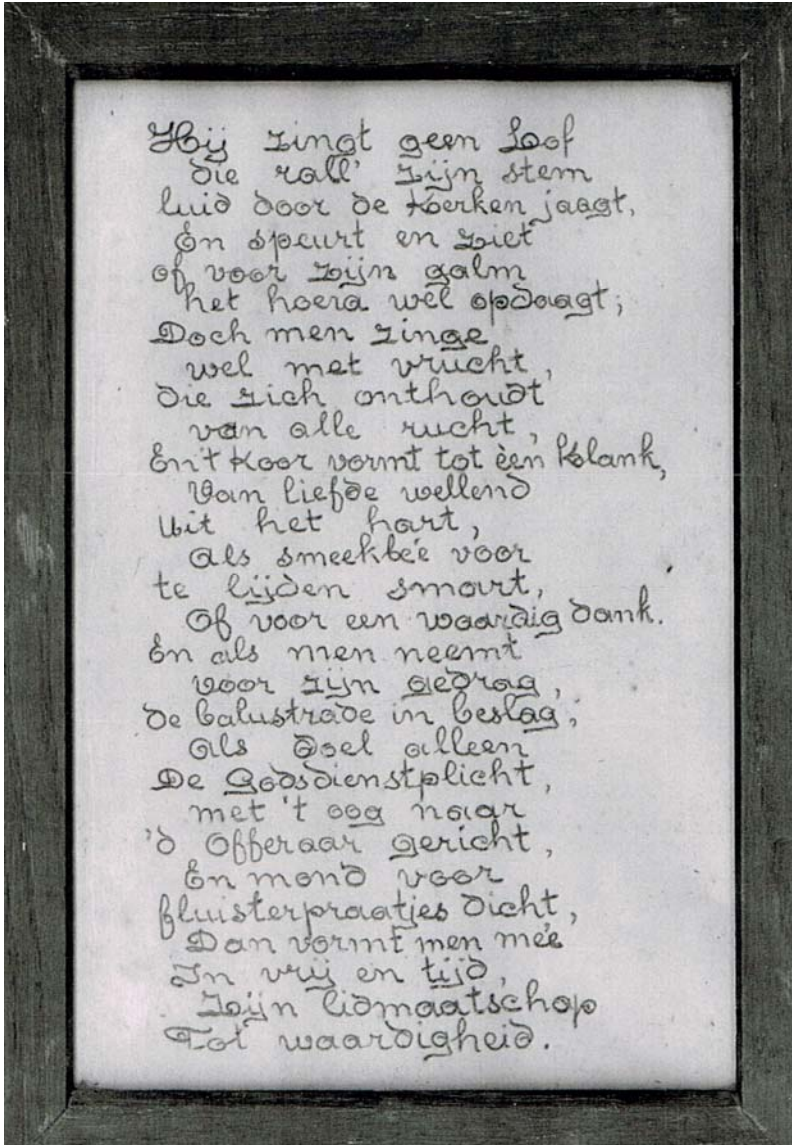 Hij zingt geen Lof
die rall' zijn stem
luid door de Kerken jaagt,
En speurt en ziet
of voor zijn galm
het hoera wel opdaagt;
Doch men zinge
wel met vrucht,
die zich onthoudt
van alle rucht,
En 't Koor vormt tot èen Klank,
Van liefde wellend
Uit het hart,
Als smeekbeê voor
te lijden smart,
Of voor een waardig dank.
En als men neemt
voor zijn gedrag,
de balustrade in beslag,
Als doel alleen
De Godsdienstplicht,
met 't oog naar
'd Offeraar gericht,
En mond voor
fluisterpraatjes dicht,
Dan vormt men meê
In vrij en tijd,
Zijn lidmaatschap
Tot waardigheid.